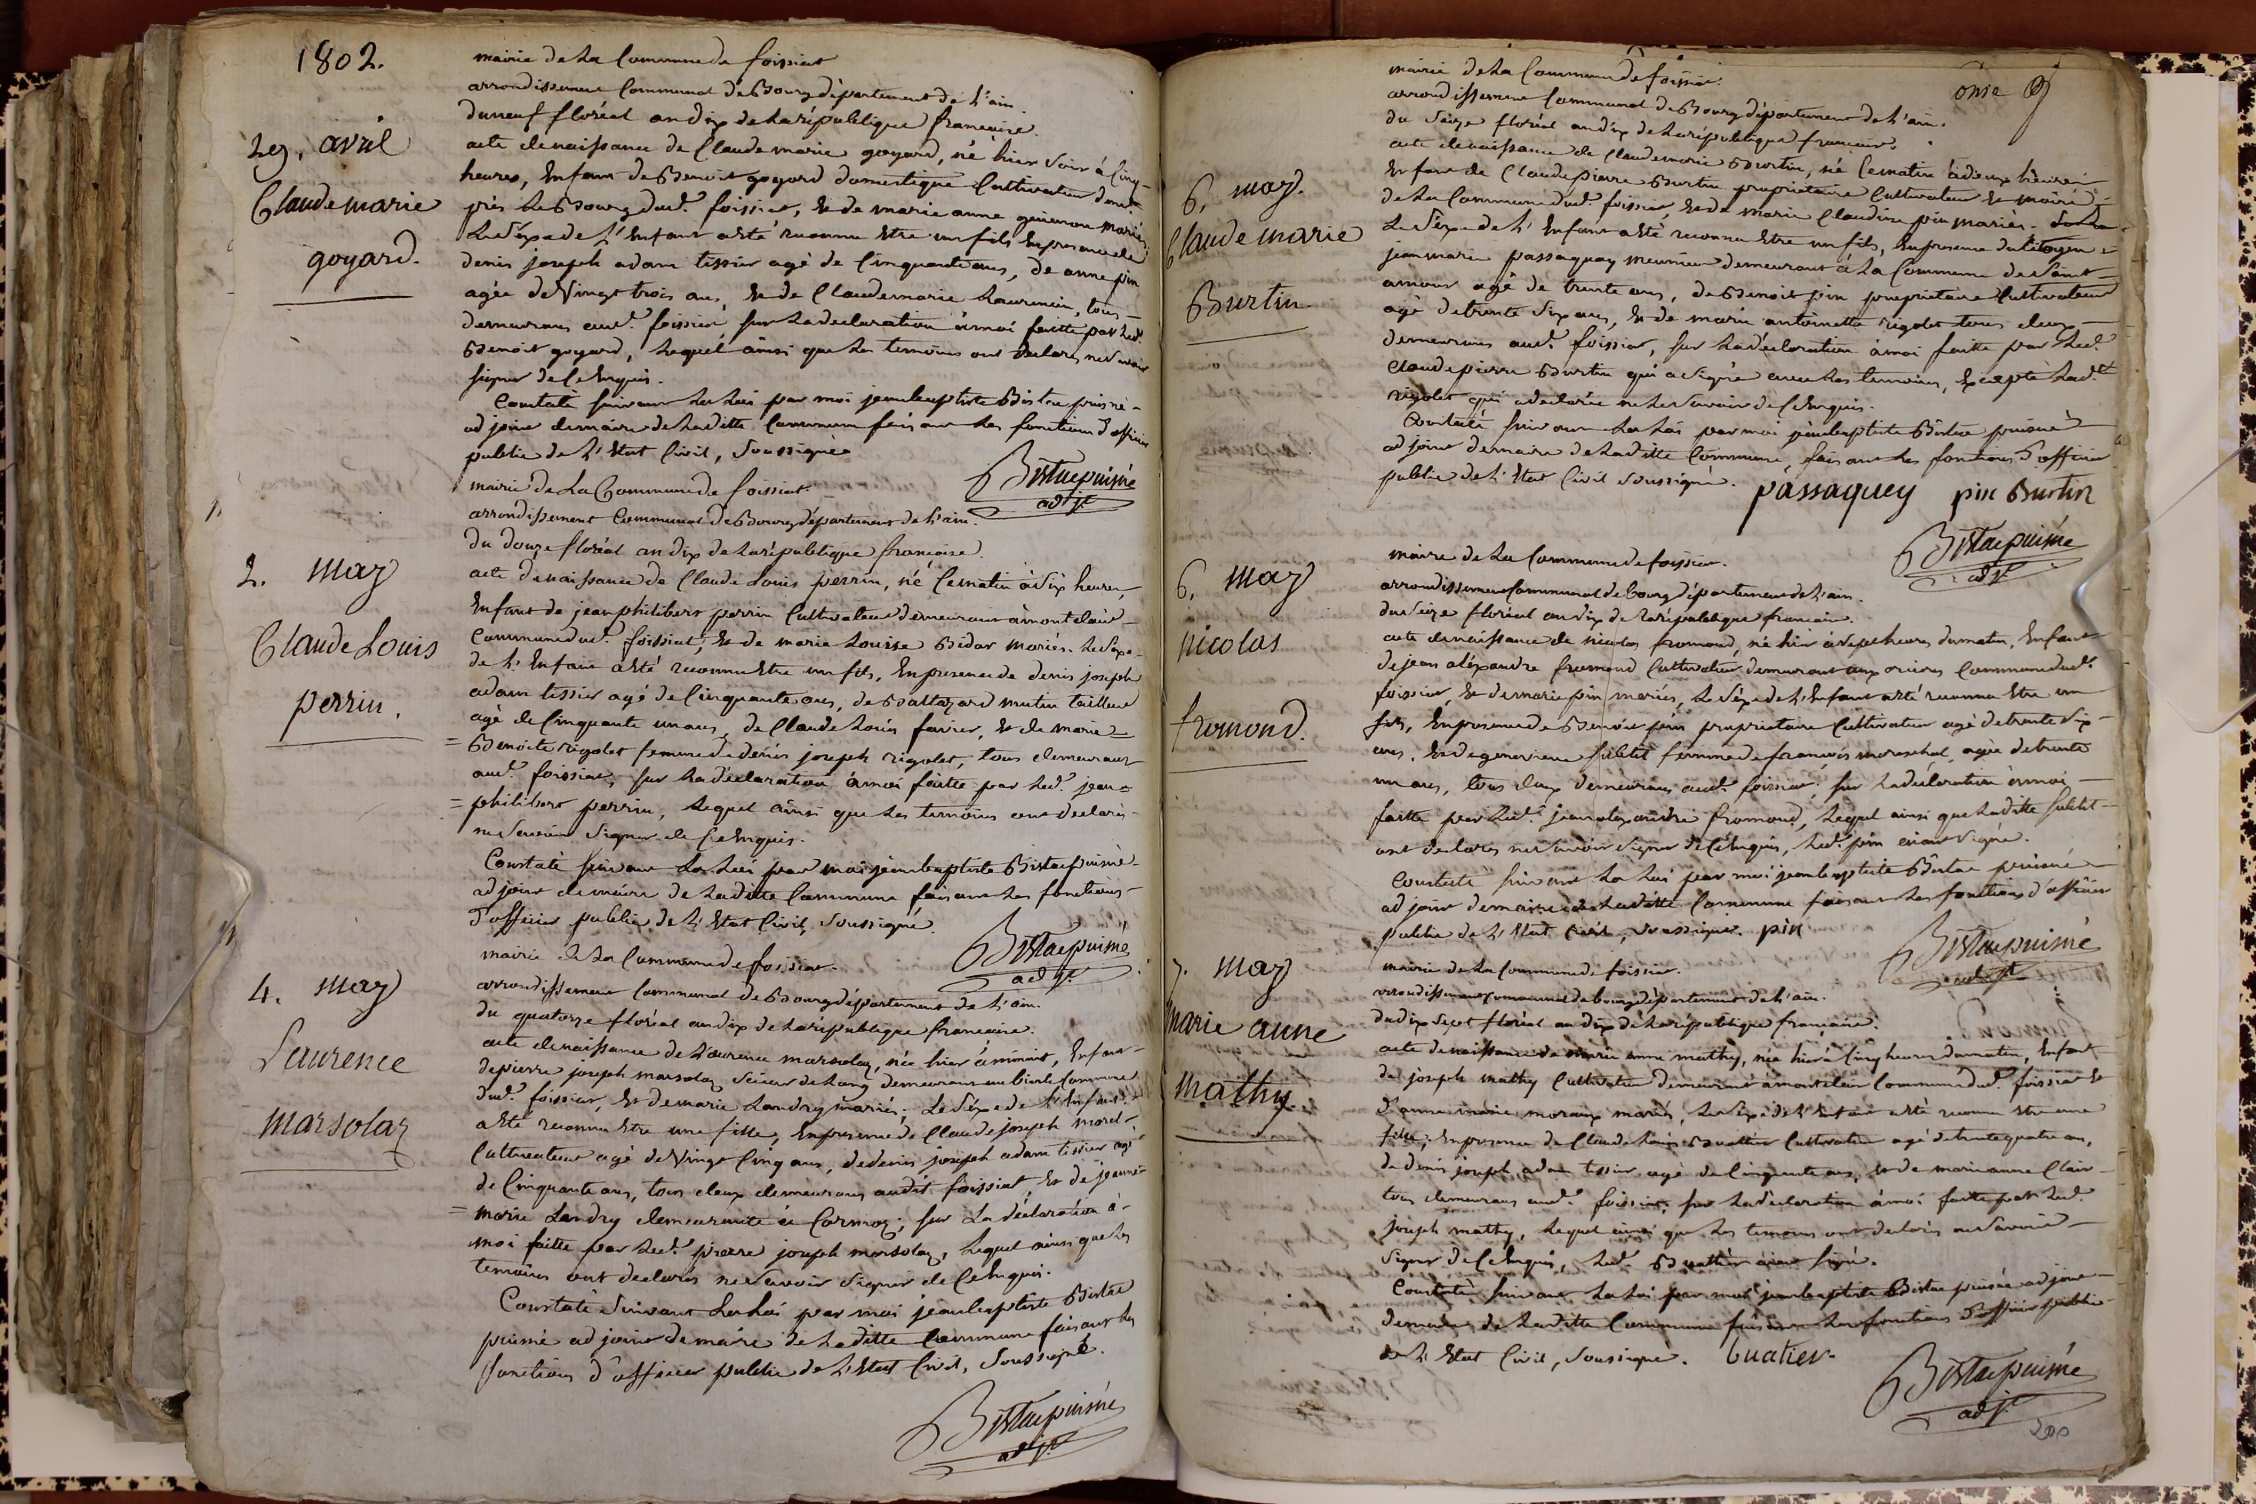 1802.
29, avril
Claude marie
goyard.
mairie de La Commune de foissiat
arrondissement Communal de Bourg département de L'ain.
du neuf floréal an dix de La république francaise.
acte de naissance de Claude marie goyard, né hier soir à Cinq
heures, Enfant de Benoit goyard domestique Cultivateur dem.t
près Le Bourg dud.t foissiat, Et de marie anne mariés.
Le Sexe de L'Enfant a Eté reconnu Etre un fils, En presence de
denis joseph adam tissier agé de Cinquante ans, de anne pin
agée de Vingt trois ans, Et de Claude marie Laurencin, tous
demeurans aud.t foissiat sur La déclaration à moi faitte par Led.t
Benoit goyard, Lequel ainsi que Les temoins ont declarés ne Savoir
signer de Ce Enquis.
Constaté suivant La Loi par moi jean baptiste Bistac puisné
adjoint de maire de Laditte Commune faisant Les fonctions d'officier
public de L'Etat Civil, Soussigné
Bistac puisné
adj.t
2. may
Claude Louis
perrin.
mairie de La Commune de foissiat.
arrondissement Communal de Bourg département de L'ain.
du douze floréal an dix de La république francaise.
acte de naissance de Claude Louis perrin, né Ce matin à Six heures,
Enfant de jean philibert perrin Cultivateur demeurant à montclair
Commune dud.t foissiat, Et de marie Louise Bidar mariés. Le Sexe
de L'Enfant a Eté reconnu Etre un fils, En presence de denis joseph
adam tissier agé de Cinquante ans, de Baltazard mutin tailleur
agé de Cinquante un ans, de Claude Louis favier, Et de marie
= Benoite rigolet femme de denis joseph rigolet, tous demeurant
aud.t foissiat, sur La déclaration à moi faitte par Led.t jean =
= philibert perrin, Lequel ainsi que Les temoins ont declarés
ne Savoir Signer de Ce Enquis.
Constaté suivant La Loi par moi jean baptiste Bistac puisné
adjoint de maire de Laditte Commune faisant Les fonctions
d'officier public de L'Etat Civil, Soussigné.
Bistac puisné
adj.t
4. may
Laurence
marsolaz
mairie de La Commune de foissiat.
arrondissement Communal de Bourg département de L'ain.
du quatorze floréal an dix de La république francaise.
acte de naissance de Laurence marsolaz, née hier à minuit, Enfant
de pierre joseph marsolaz Scieur de Long demeurant Commune
dud.t foissiat, Et de marie Landry mariés. Le Sexe de L'Enfant
a Eté reconnu Etre une fille, En presence de Claude joseph morel
Cultivateur agé de Vingt Cinq ans, de denis joseph adam tissier agé
de Cinquante ans, tous deux demeurans audit foissiat Et de jeanne
= marie Landry demeurante à Cormoz; sur La déclaration à
moi faitte par Led.t pierre joseph marsolaz, Lequel ainsi que Les
temoins ont declarés ne Savoir Signer de Ce Enquis.
Constaté Suivant La Loi par moi jean baptiste Bistac
puisné adjoint de maire de Laditte Commune faisant les
fonctions d'officier public de L'Etat Civil, Soussigné.
Bistac puisné
adj.t
onse
6, may.
Claude marie
Burtin
mairie de La Commune de foissiat.
arrondissement Communal de Bourg département de L'ain.
du Seize floréal an dix de La république francaise.
acte de naissance de Claude marie Burtin, né Ce matin à deux heures
Enfant de Claude pierre Burtin propriétaire Cultivateur Et maire
de La Commune dud.t foissiat, Et de marie Claudine pin mariés.
Le Sexe de L'Enfant a Eté reconnu Etre un fils, En presence du Citoyen
jean marie passaquay meunier demeurant à La Commune de Saint
amour agé de trente ans, de Benoit pin propriétaire Cultivateur
agé de trente Six ans, Et de marie antoinette rigolet tous deux
demeurans aud.t foissiat, sur La déclaration à moi faitte par Led.t
Claude pierre Burtin qui a Signé avec Les temoins, Excepté Lad.te
rigolet qui a declarée ne Le Savoir de Ce Enquis.
Constaté suivant La Loi par moi jean baptiste Bistac puisné
adjoint de maire de Laditte Commune, faisant Les fonctions d'officier
public de L'Etat Civil Soussigné.
passaquey pin Burtin
Bistac puisné
adj.t
6, may
nicolas
fromond.
mairie de La Commune de foissiat.
arrondissement Communal de bourg département de L'ain.
du Seize floréal an dix de La république francaise.
acte de naissance de nicolas fromond, né hier à Sept heures du matin, Enfant
de jean aléxandre fromond Cultivateur demeurant aux Commune dud.t
foissiat, Et de marie pin mariés, Le Sexe de L'Enfant a Eté reconnu Etre un
fils, En presence de Benoit pin propriétaire Cultivateur agé de trente Six
ans, Et de genevieve femme de francois marechal, agée de trente
un ans, tous deux demeurans aud.t foissiat. sur La déclaration à moi
faitte par Led.t jean aléxandre fromond, Lequel ainsi que Laditte
ont declarés ne Savoir Signer de Ce Enquis, Led.t pin aiant Signé.
Constaté suivant La Loi par moi jean baptiste Bistac puisné
adjoint de maire de Laditte Commune faisant Les fonctions d'officier
public de L'Etat Civil, Soussigné. pin
Bistac puisné
adj.t
7. may
marie anne
mathy
mairie de La Commune de foissiat.
arrondissement Communal de bourg département de L'ain.
du dix Sept floréal an dix de La république francaise.
acte de naissance de marie anne mathy, née hier à Cinq heures du matin, Enfant
de joseph mathy Cultivateur demeurant à montclair Commune dud.t foissiat Et
d'anne marie moraux mariés, Le Sexe de L'Enfant a Eté reconnu Etre une
fille, En presence de Claude Louis Buattier Cultivateur agé de trente quatre ans,
de denis joseph adam tissier agé de Cinquante ans, Et de marie anne Clair
tous demeurans aud.t foissiat, sur La déclaration à moi faitte par Led.t
joseph mathy, Lequel ainsi que Les temoins ont declarés ne Savoir
Signer de Ce Enquis, Led.t Buattier aiant Signé.
Constaté suivant La Loi par moi jean baptiste Bistac puisné adjoint
de maire de Laditte Commune faisant Les fonctions d'officier public
de L'Etat Civil, Soussigné. buatier
Bistac puisné
adj.t
200